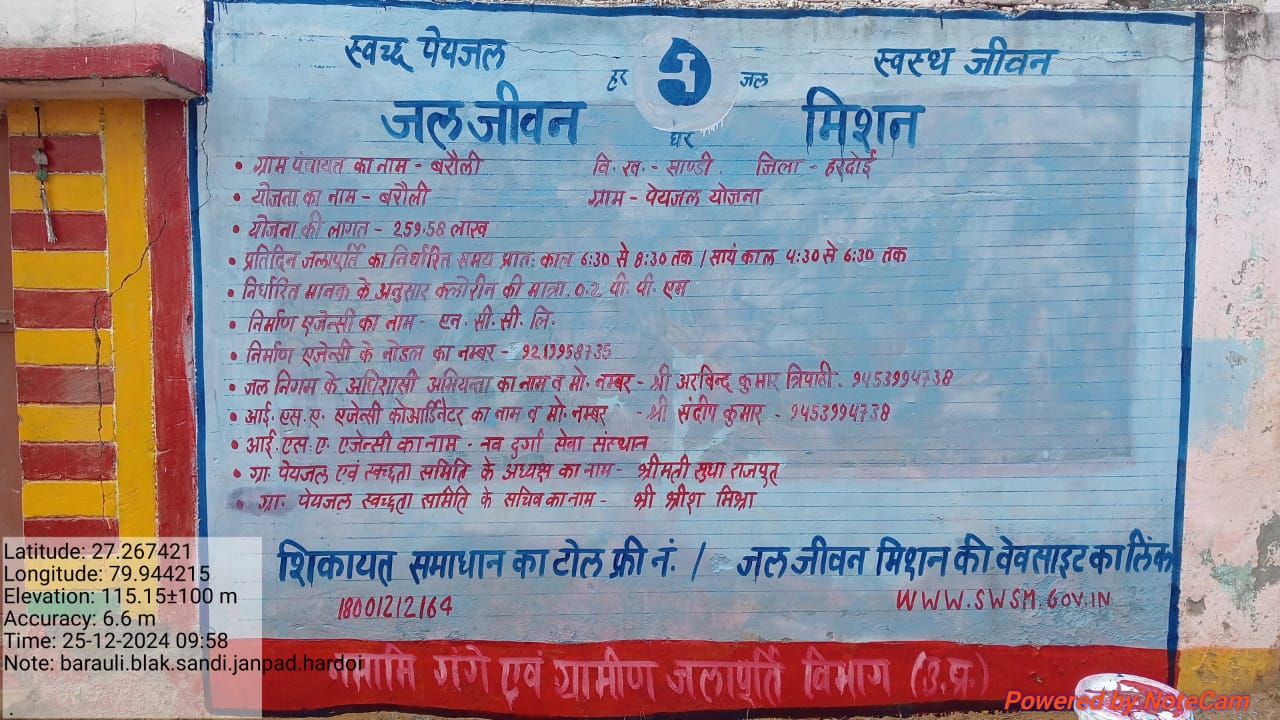 स्वच्छ पेयजल स्वस्थ जीवन
हर जल
घर
जल जीवन मिशन
• ग्राम पंचायत का नाम - बरौली वि. ख. - साण्डी. जिला - हरदोई
• योजना का नाम - बरौली ग्राम - पेयजल योजना
• योजना की लागत - 259.58 लाख
• प्रतिदिन जलापूर्ति का निर्धारित समय प्रातः काल 6:30 से 8:30 तक / सायं काल 4:30 से 6:30 तक
• निर्धारित मानक के अनुसार क्लोरीन की मात्रा. 0.2 पी. पी. एम
• निर्माण एजेन्सी का नाम - एन. सी. सी. लि.
• निर्माण एजेन्सी के नोडल का नम्बर - 9219958735
• जल निगम के अधिशासी अभियन्ता का नाम व मो. नम्बर - श्री अरविन्द कुमार त्रिपाठी. 9453994738
• आई. एस. ए. एजेन्सी कोआर्डिनेटर का नाम व मो. नम्बर - श्री संदीप कुमार - 9453994738
• आई. एस. ए. एजेन्सी का नाम - नव दुर्गा सेवा संस्थान
• ग्रा. पेयजल एवं स्वच्छता समिति के अध्यक्ष का नाम - श्रीमती सुधा राजपूत
• ग्रा. पेयजल स्वच्छता समिति के सचिव का नाम - श्री श्रीश मिश्रा
शिकायत समाधान का टोल फ्री नं. / जल जीवन मिशन की वेवसाइट का लिंक
18001212164 WWW.SWSM.GOV.IN
नमामि गंगे एवं ग्रामीण जलापूर्ति विभाग (उ.प्र.)
Latitude: 27.267421
Longitude: 79.944215
Elevation: 115.15±100 m
Accuracy: 6.6 m
Time: 25-12-2024 09:58
Note: barauli.blak.sandi.janpad.hardoi
Powered by NoteCam